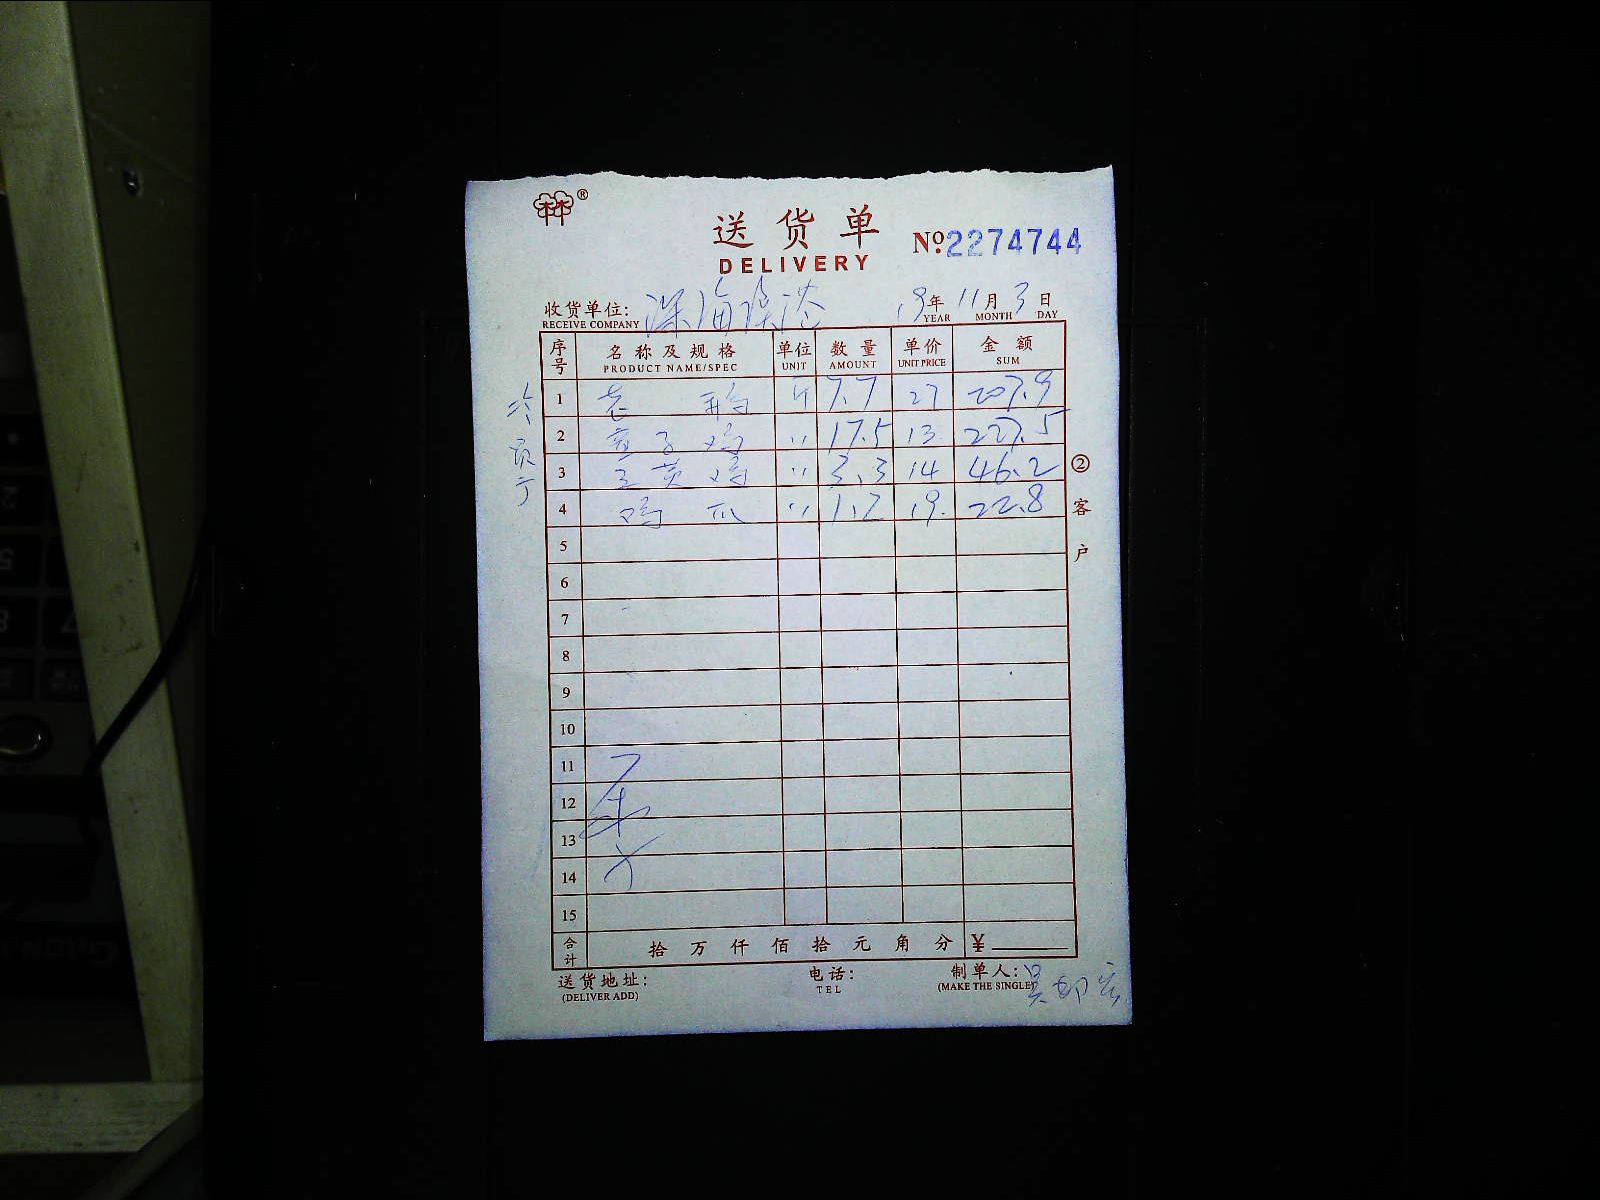 林®
送货单
DELIVERY
№ 2274744
收货单位: 深海渔港 19年 11月 3日
RECEIVE COMPANY YEAR MONTH DAY
序号 名称及规格 单位 数量 单价 金额
PRODUCT NAME/SPEC UNIT AMOUNT UNIT PRICE SUM
1 老鸭 斤 7.7 27 207.9
2 童子鸡 〃 17.5 13 227.5
3 三黄鸡 〃 3.3 14 46.2
4 鸡爪 〃 1.2 19 22.8
5
6
7
8
9
10
11
12
13
14
15
②客户
合计 拾 万 仟 佰 拾 元 角 分 ¥
送货地址: 电话: 制单人:
(DELIVER ADD) TEL (MAKE THE SINGLE)